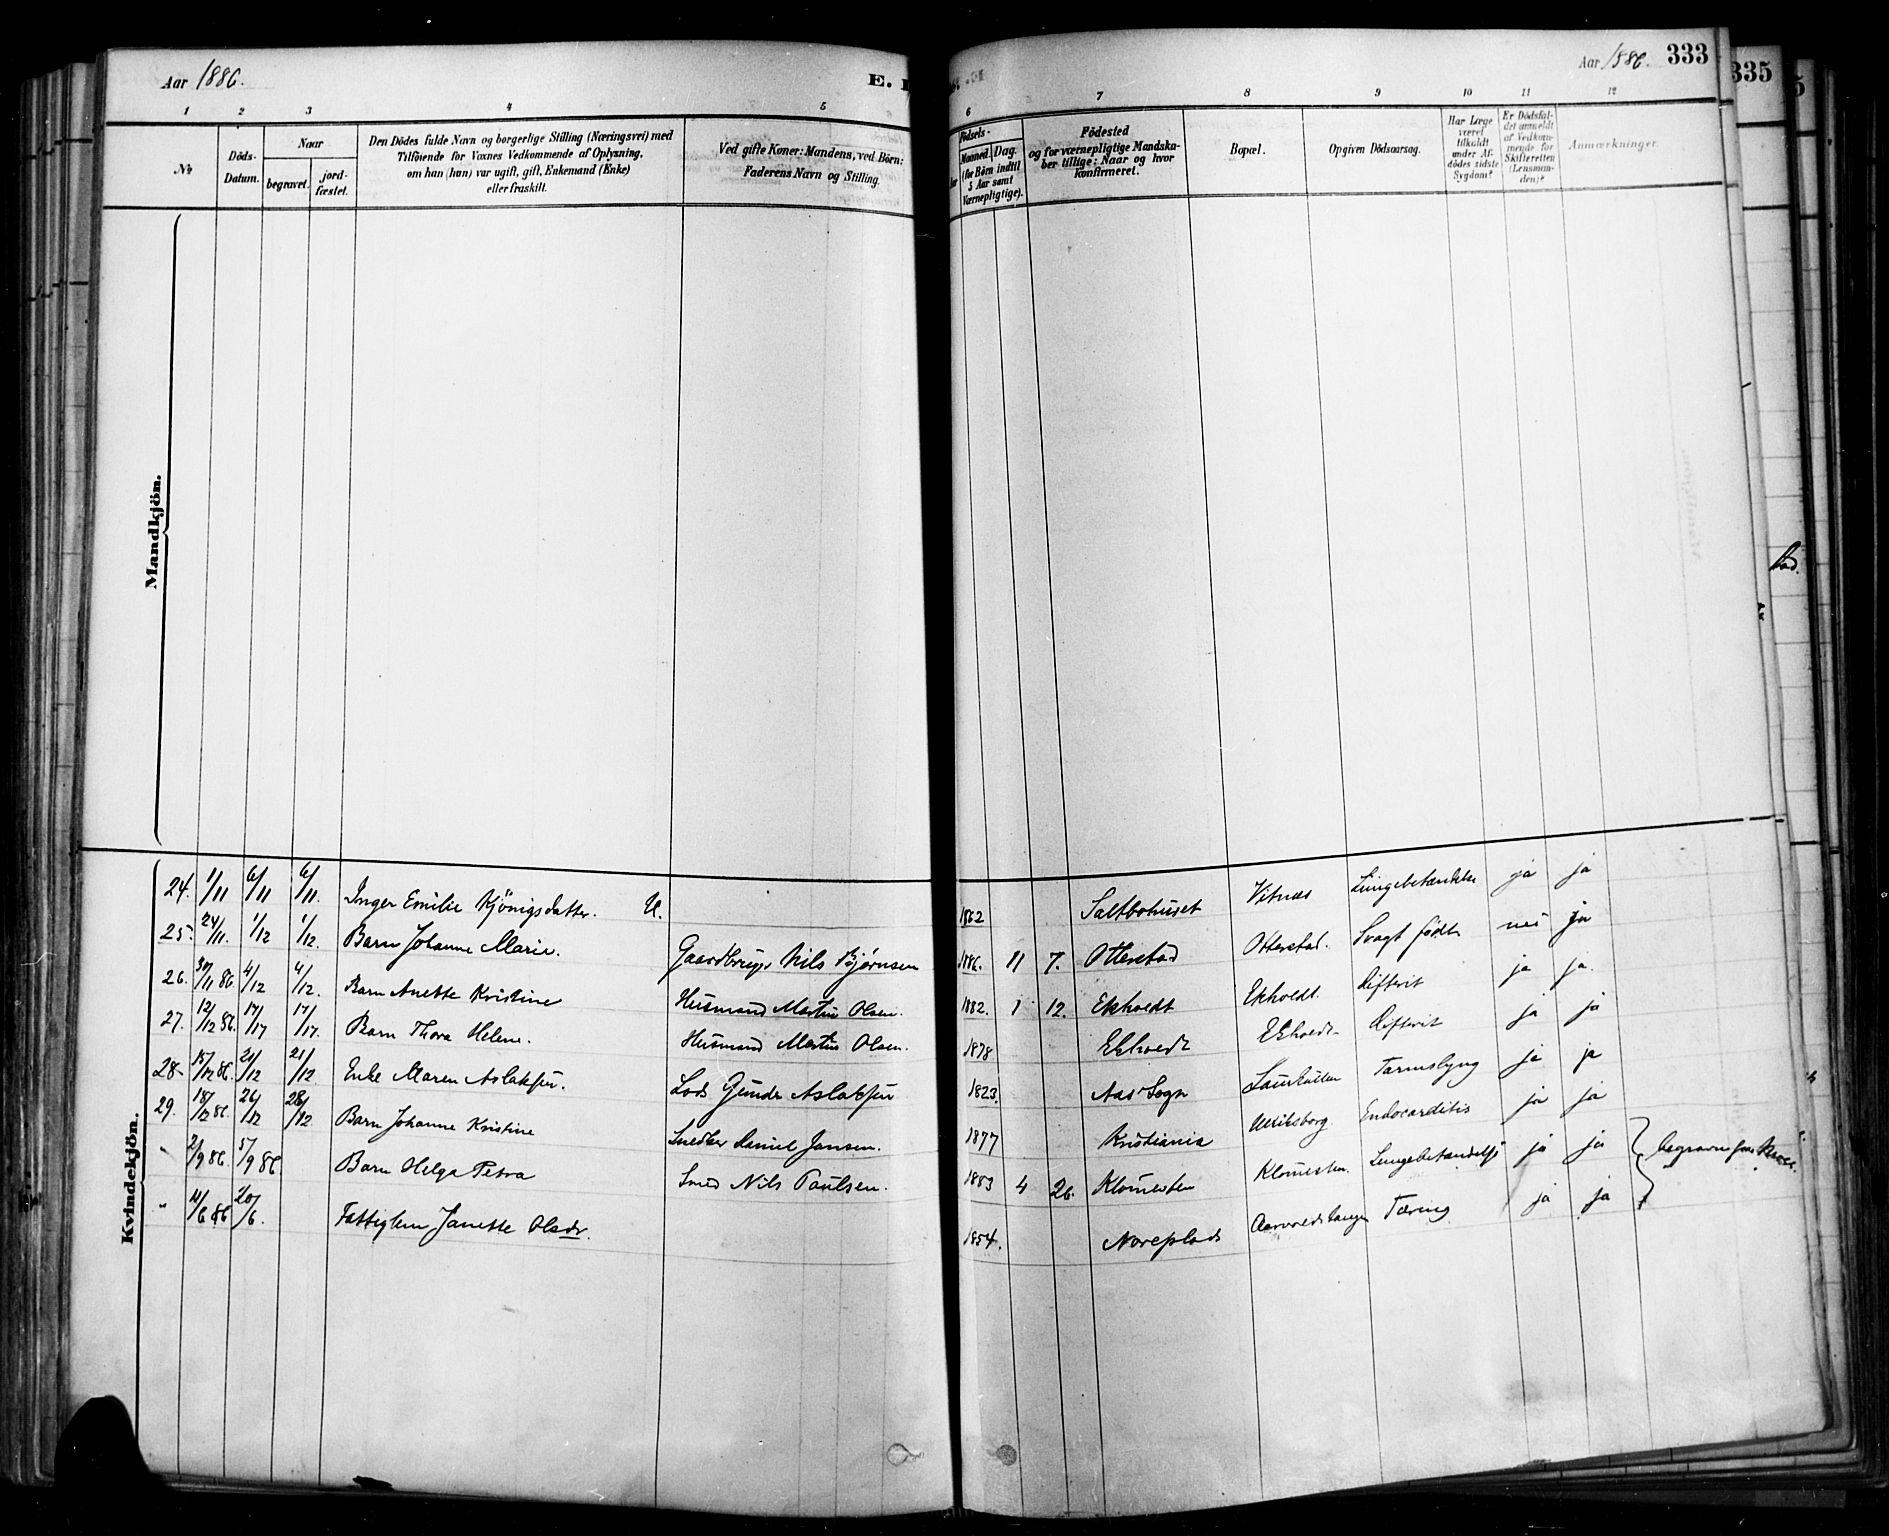 Aar 1886.
E.
Aar 1886. 333
335
5
1 2 3 4 5
6 7 8 9 10 11 12
No
Döds-Datum.
Naar
begravet.
jordfæstet.
Den Dödes fulde Navn og borgerlige Stilling (Næringsvei) med
Tilföiende for Voxnes Vedkommende af Oplysning,
om han (hun) var ugift, gift, Enkemand (Enke)
eller fraskilt.
Ved gifte Koner: Mandens, ved Börn:
Faderens Navn og Stilling.
Födsels-
Maaned. Dag.
(for Börn indtil
5 Aar samt
Værnepligtige).
Födested
og for værnepligtige Mandska-
ber tillige: Naar og hvor
konfirmeret.
Bopæl.
Opgiven Dödsaarsag.
Har Læge
været
tilkaldt
under Af-
dödes sidste
Sygdom?
Er Dödsfal-
det anmeldt
af Vedkom-
mende for
Skifteretten
(Lensman-
den)?
Anmærkninger.
Mandkjön.
Kvindekjön.
24. 1/11 6/11 6/11. Inger Emilie Kjönigsdatter. U. 1862 Saltbohuset Vitnæs Lungebetændelse ja ja
25. 24/11. 1/12 1/12. Barn Johanne Marie. Gaardbruger Nils Bjørnsen 1886. 11 7. Otterstad Otterstad. Svagt født nei ja
26. 30/11 86. 4/12 4/12. Barn Anette Kristine Husmand Martin Olsen. 1882. 1 12. Ekholdt Ekholdt. Difterit ja ja.
27. 12/12 86. 17/17 17/17. Barn Thora Helene. Husmand Martin Olsen. 1878 Ekholdt Ekholdt Difterit ja ja
28. 15/12 86. 21/12 21/12 Enke Maren Aslaksen. Lods Gunder Aslaksen 1823. Aas Sogn Tarmslyng ja ja
29. 18/12 86. 26/12 28/12 Barn Johanne Kristine Snedker Daniel Jansen. 1877 Kristiania Endocarditis ja ja
" 2/9 86. 5/9 86. Barn Helga Petra Smed Nils Paulsen. 1883 4 26. Klomesten Klomesten. Lungebetændelse ja ja
" 11/6 86 20/6. Fattiglem Janette Olsdr. 1854. Noreplads Tæring ja ja